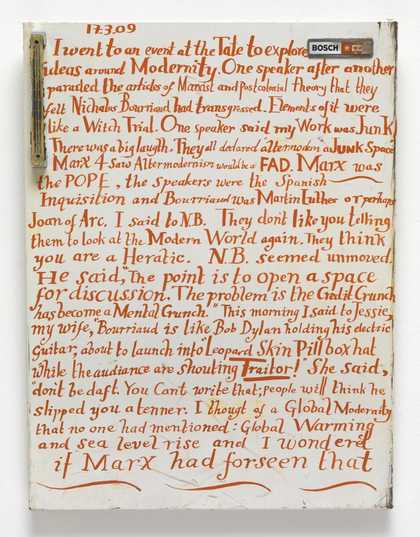 17.3.09
I went to an event at the Tate to explore
BOSCH
ideas around Modernity. One speaker after another
paraded the articles of Marxist and Postcolonial Theory that they
felt Nicholas Bourriaud had transgressed. Elements of it were
like a Witch Trial. One speaker said my Work was Junk
There was a big laugh. They all declared altermodern a Junk Space
Marx 4 Saw Altermodernism would be a FAD. Marx was
the POPE, the speakers were the Spanish
Inquisition and Bourriaud was Martin Luther or perhaps
Joan of Arc. I said to N.B. They don't like you telling
them to look at the Modern World again. They think
you are a Heratic. N.B. seemed unmoved.
He said, "The point is to open a space
for discussion. The problem is the Credit Crunch
has become a Mental Crunch." This morning I said to Jessie
my wife, "Bourriaud is like Bob Dylan holding his electric
guitar, about to launch into "Leopard Skin Pill box hat
while the audience are shouting Traitor!" She said,
"don't be daft. You Cant write that, people will think he
slipped you a tenner. I thougt of a Global Modernity
that no one had mentioned: Global Warming
and sea level rise and I wondered
if Marx had forseen that